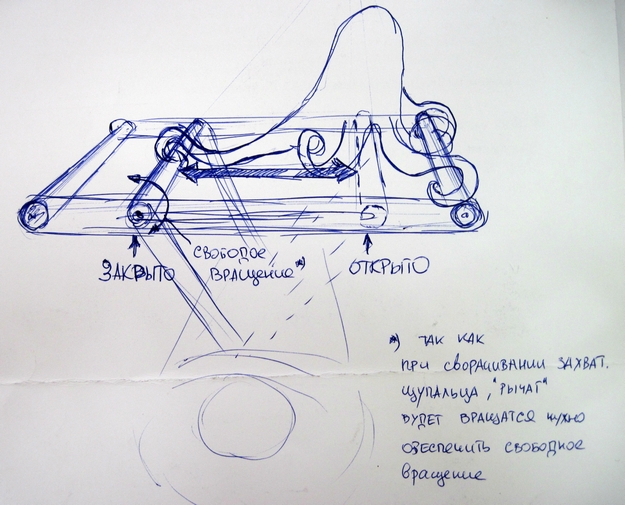 ЗАКРЫТО
СВОБОДОЕ
ВРАЩЕНИЕ *)
ОТКРЫТО
*) ТАК КАК
ПРИ СВОРАЧИВАНИИ ЗАХВАТ.
ЩУПАЛЬЦА, "РЫЧАГ"
БУДЕТ ВРАЩАТСЯ НУЖНО
ОБЕСПЕЧИТЬ СВОБОДНОЕ
ВРАЩЕНИЕ